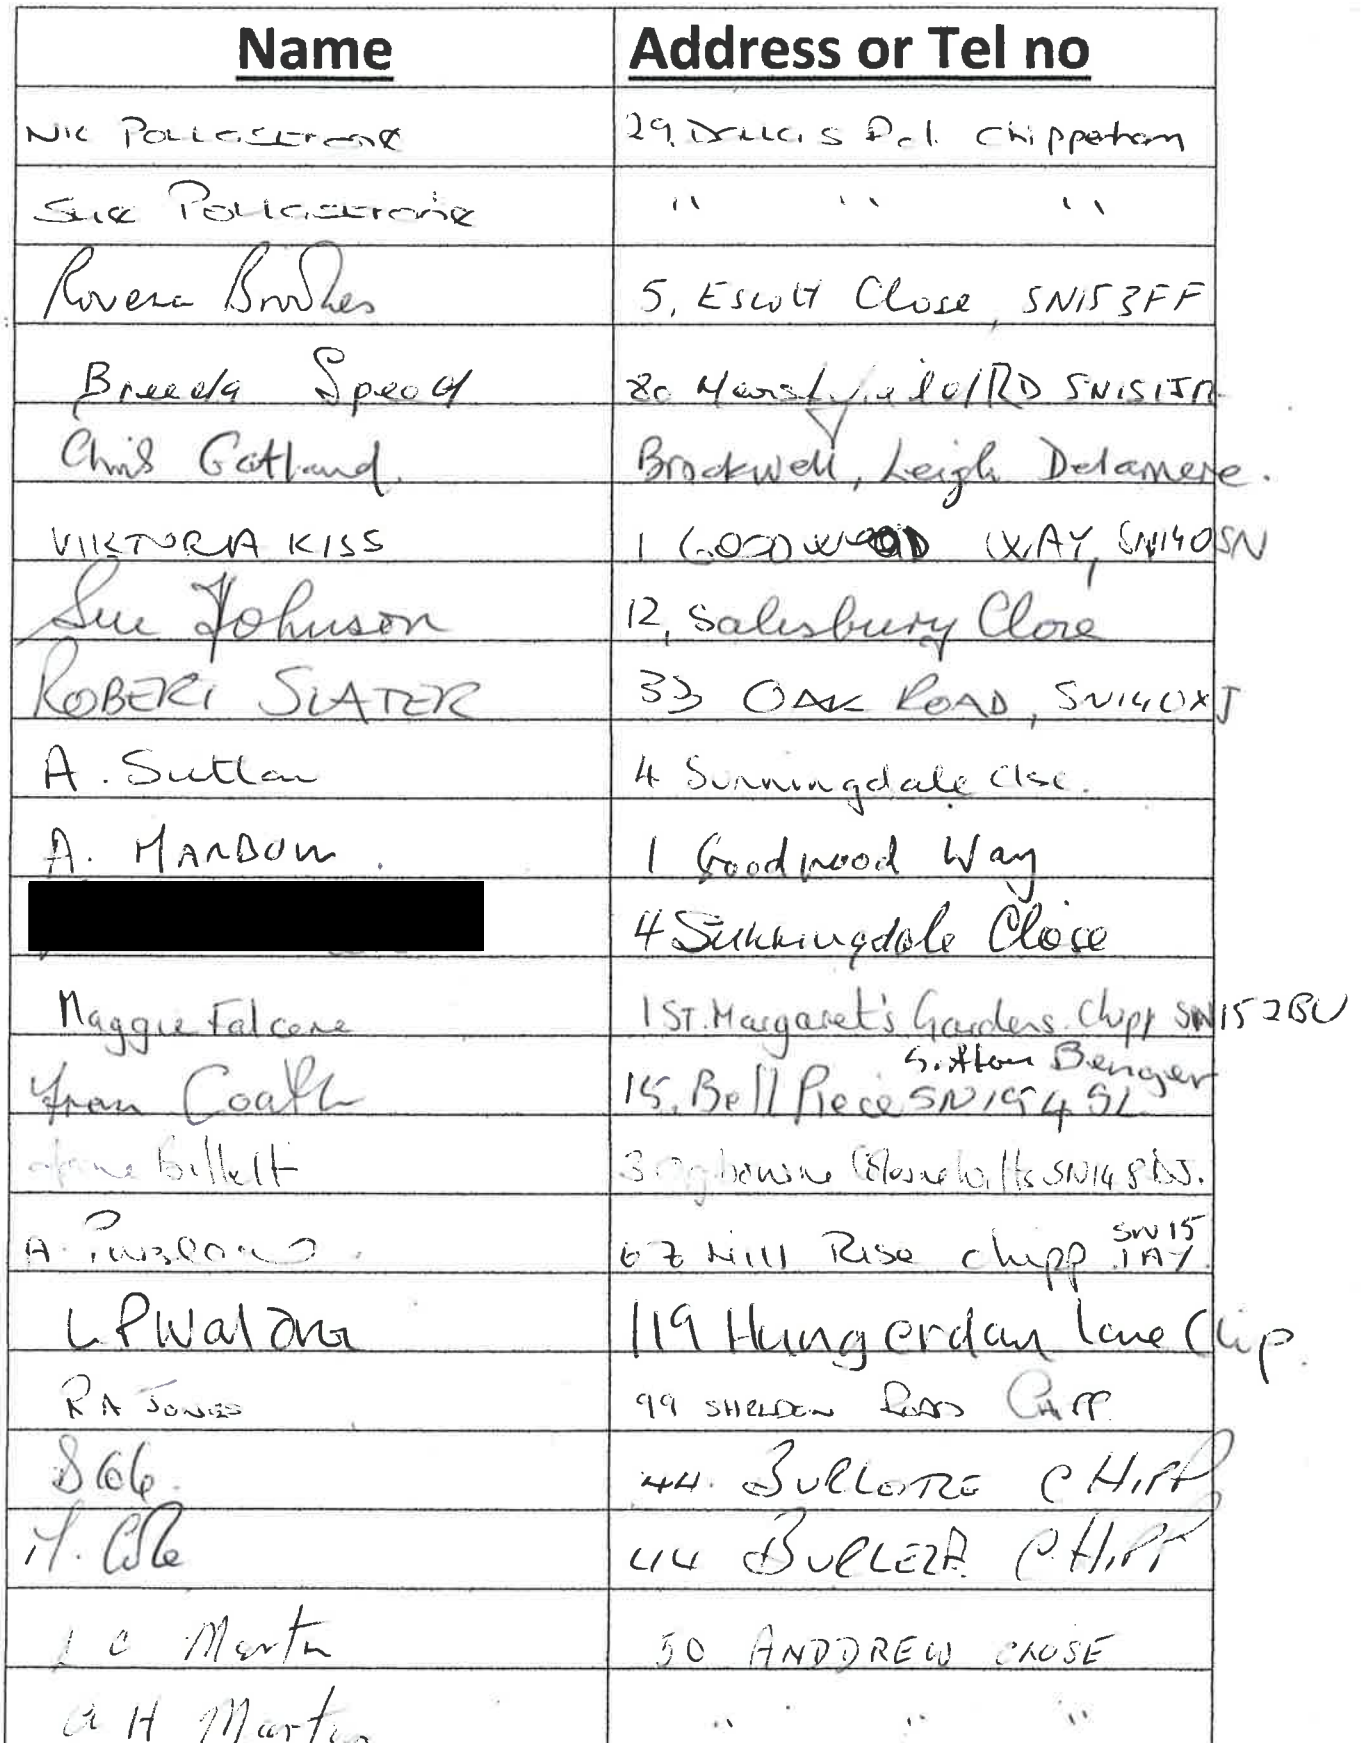 Name Address or Tel no
Nic 29, Rd. Chippenham
Sue " " "
Rovena Brookes 5, Escott Close, SN15 3FF
Breeda Speed 80 Marshfield RD SN15 1JR
Chris Gatland. Brockwell, Leigh Delamere.
VIKTORIA KISS 1 GOODWOOD WAY, SN14 0SN
Sue Johnson 12, Salesbury Close
ROBERT SLATER 33 OAK ROAD, SN14 0XJ
A. Sutton 4 Sunningdale Close.
A. 1 Goodwood Way
4 Sunningdale Close
Maggie Falcone 1 ST. Margaret's Gardens. Chipp SN15 2BU
Sutton Benger
Fran Coath 15, Bell Piece SN15 4SL
Billett 3 SN14
SN15
A. 67 Hill Rise Chipp 1AY.
L P 119 Hungerdown Lane Chip.
R A JONES 99 SHELDON ROAD CHIPP
44. CHIPP
M. Cole 44 CHIPP
L C Martin 50 ANDDREW CLOSE
A H Martin " " "